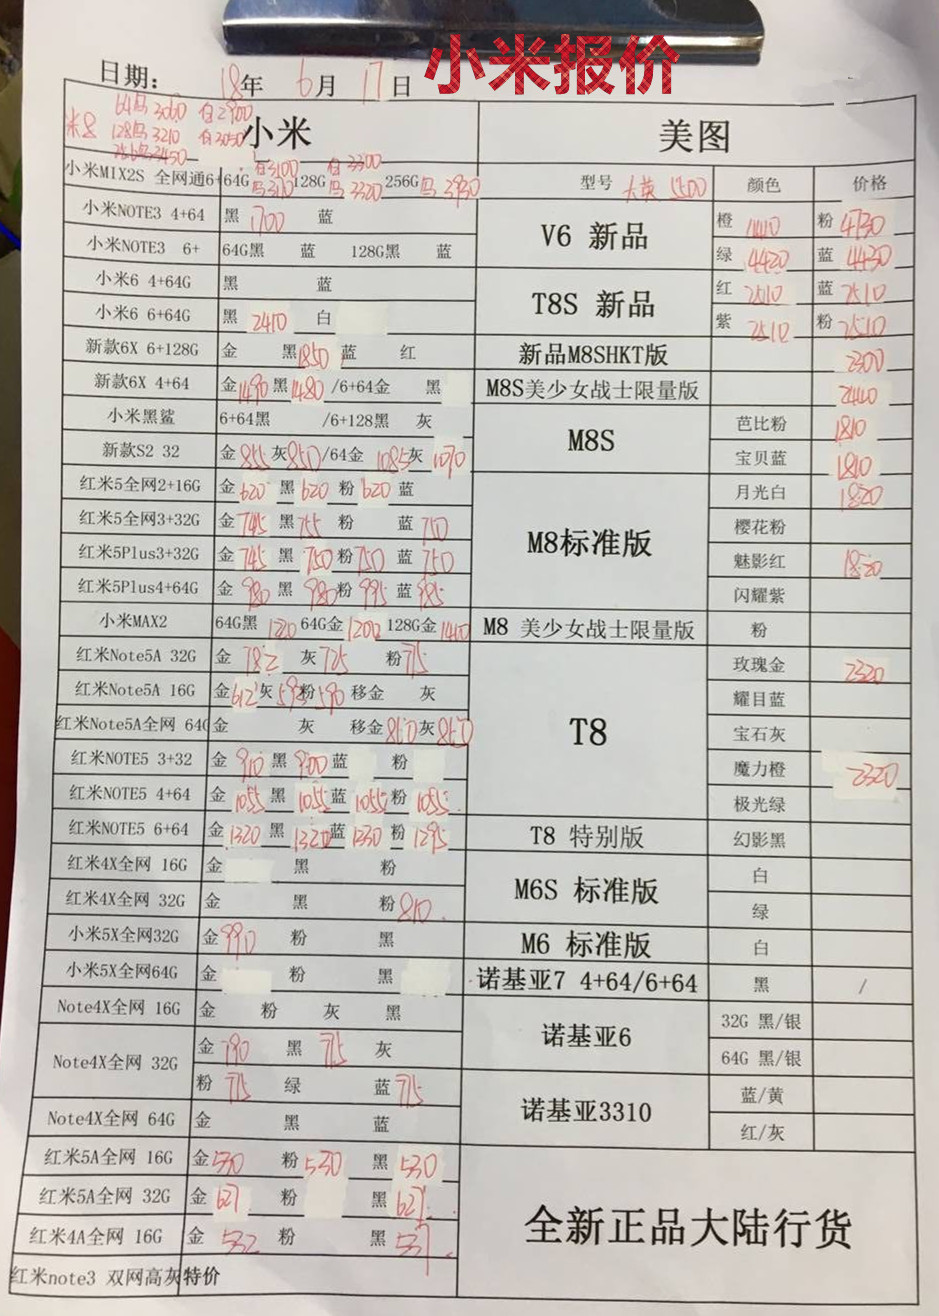 小米报价
日期: 18年 6月 17日
米8 64黑3060 白2900
128黑3210 白3050
小米 美图
小米MIX2S 全网通6+ 64G 白3100 黑3110 128G 白3300 黑3320 256G 黑3930
型号 大英 5500 颜色 价格
小米NOTE3 4+64 黑1700 蓝
小米NOTE3 6+ 64G黑 蓝 128G黑 蓝
小米6 4+64G 黑 蓝
小米6 6+64G 黑 2410 白
新款6X 6+128G 金 黑1850 蓝 红
新款6X 4+64 金1490 黑1480 /6+64金 黑
小米黑鲨 6+64黑 /6+128黑 灰
新款S2 32 金855 灰850 /64金 1085 灰1070
红米5全网2+16G 金620 黑620 粉620 蓝
红米5全网3+32G 金745 黑755 粉 蓝750
红米5Plus3+32G 金745 黑750 粉750 蓝750
红米5Plus4+64G 金980 黑980 粉995 蓝985
小米MAX2 64G黑 1220 64G金 1200 128G金 1400
红米Note5A 32G 金782 灰725 粉715
红米Note5A 16G 金612 灰592 粉590 移金 灰
红米Note5A全网 64G 金 灰 移金860 灰860
红米NOTE5 3+32 金910 黑900 蓝 粉
红米NOTE5 4+64 金1055 黑1055 蓝1055 粉1055
红米NOTE5 6+64 金1320 黑1320 蓝1330 粉1295
红米4X全网 16G 金 黑 粉
红米4X全网 32G 金 黑 粉810
小米5X全网32G 金990 粉 黑
小米5X全网64G 金 粉 黑
Note4X全网 16G 金 粉 灰 黑
Note4X全网 32G 金790 黑715 灰
粉715 绿 蓝715
Note4X全网 64G 金 黑 蓝
红米5A全网 16G 金530 粉530 黑530
红米5A全网 32G 金627 粉 黑627
红米4A全网 16G 金532 粉 黑537
红米note3 双网高灰特价
V6 新品 橙 4410 粉 4730
绿 4420 蓝 4430
T8S 新品 红 2510 蓝 2510
紫 2510 粉 2510
新品M8SHKT版 2300
M8S美少女战士限量版 2440
M8S 芭比粉 1810
宝贝蓝 1810
M8标准版 月光白 1820
樱花粉
魅影红 1820
闪耀紫
M8 美少女战士限量版 粉
T8 玫瑰金 2320
耀目蓝
宝石灰
魔力橙 2320
极光绿
T8 特别版 幻影黑
M6S 标准版 白
绿
M6 标准版 白
诺基亚7 4+64/6+64 黑 /
诺基亚6 32G 黑/银
64G 黑/银
诺基亚3310 蓝/黄
红/灰
全新正品大陆行货